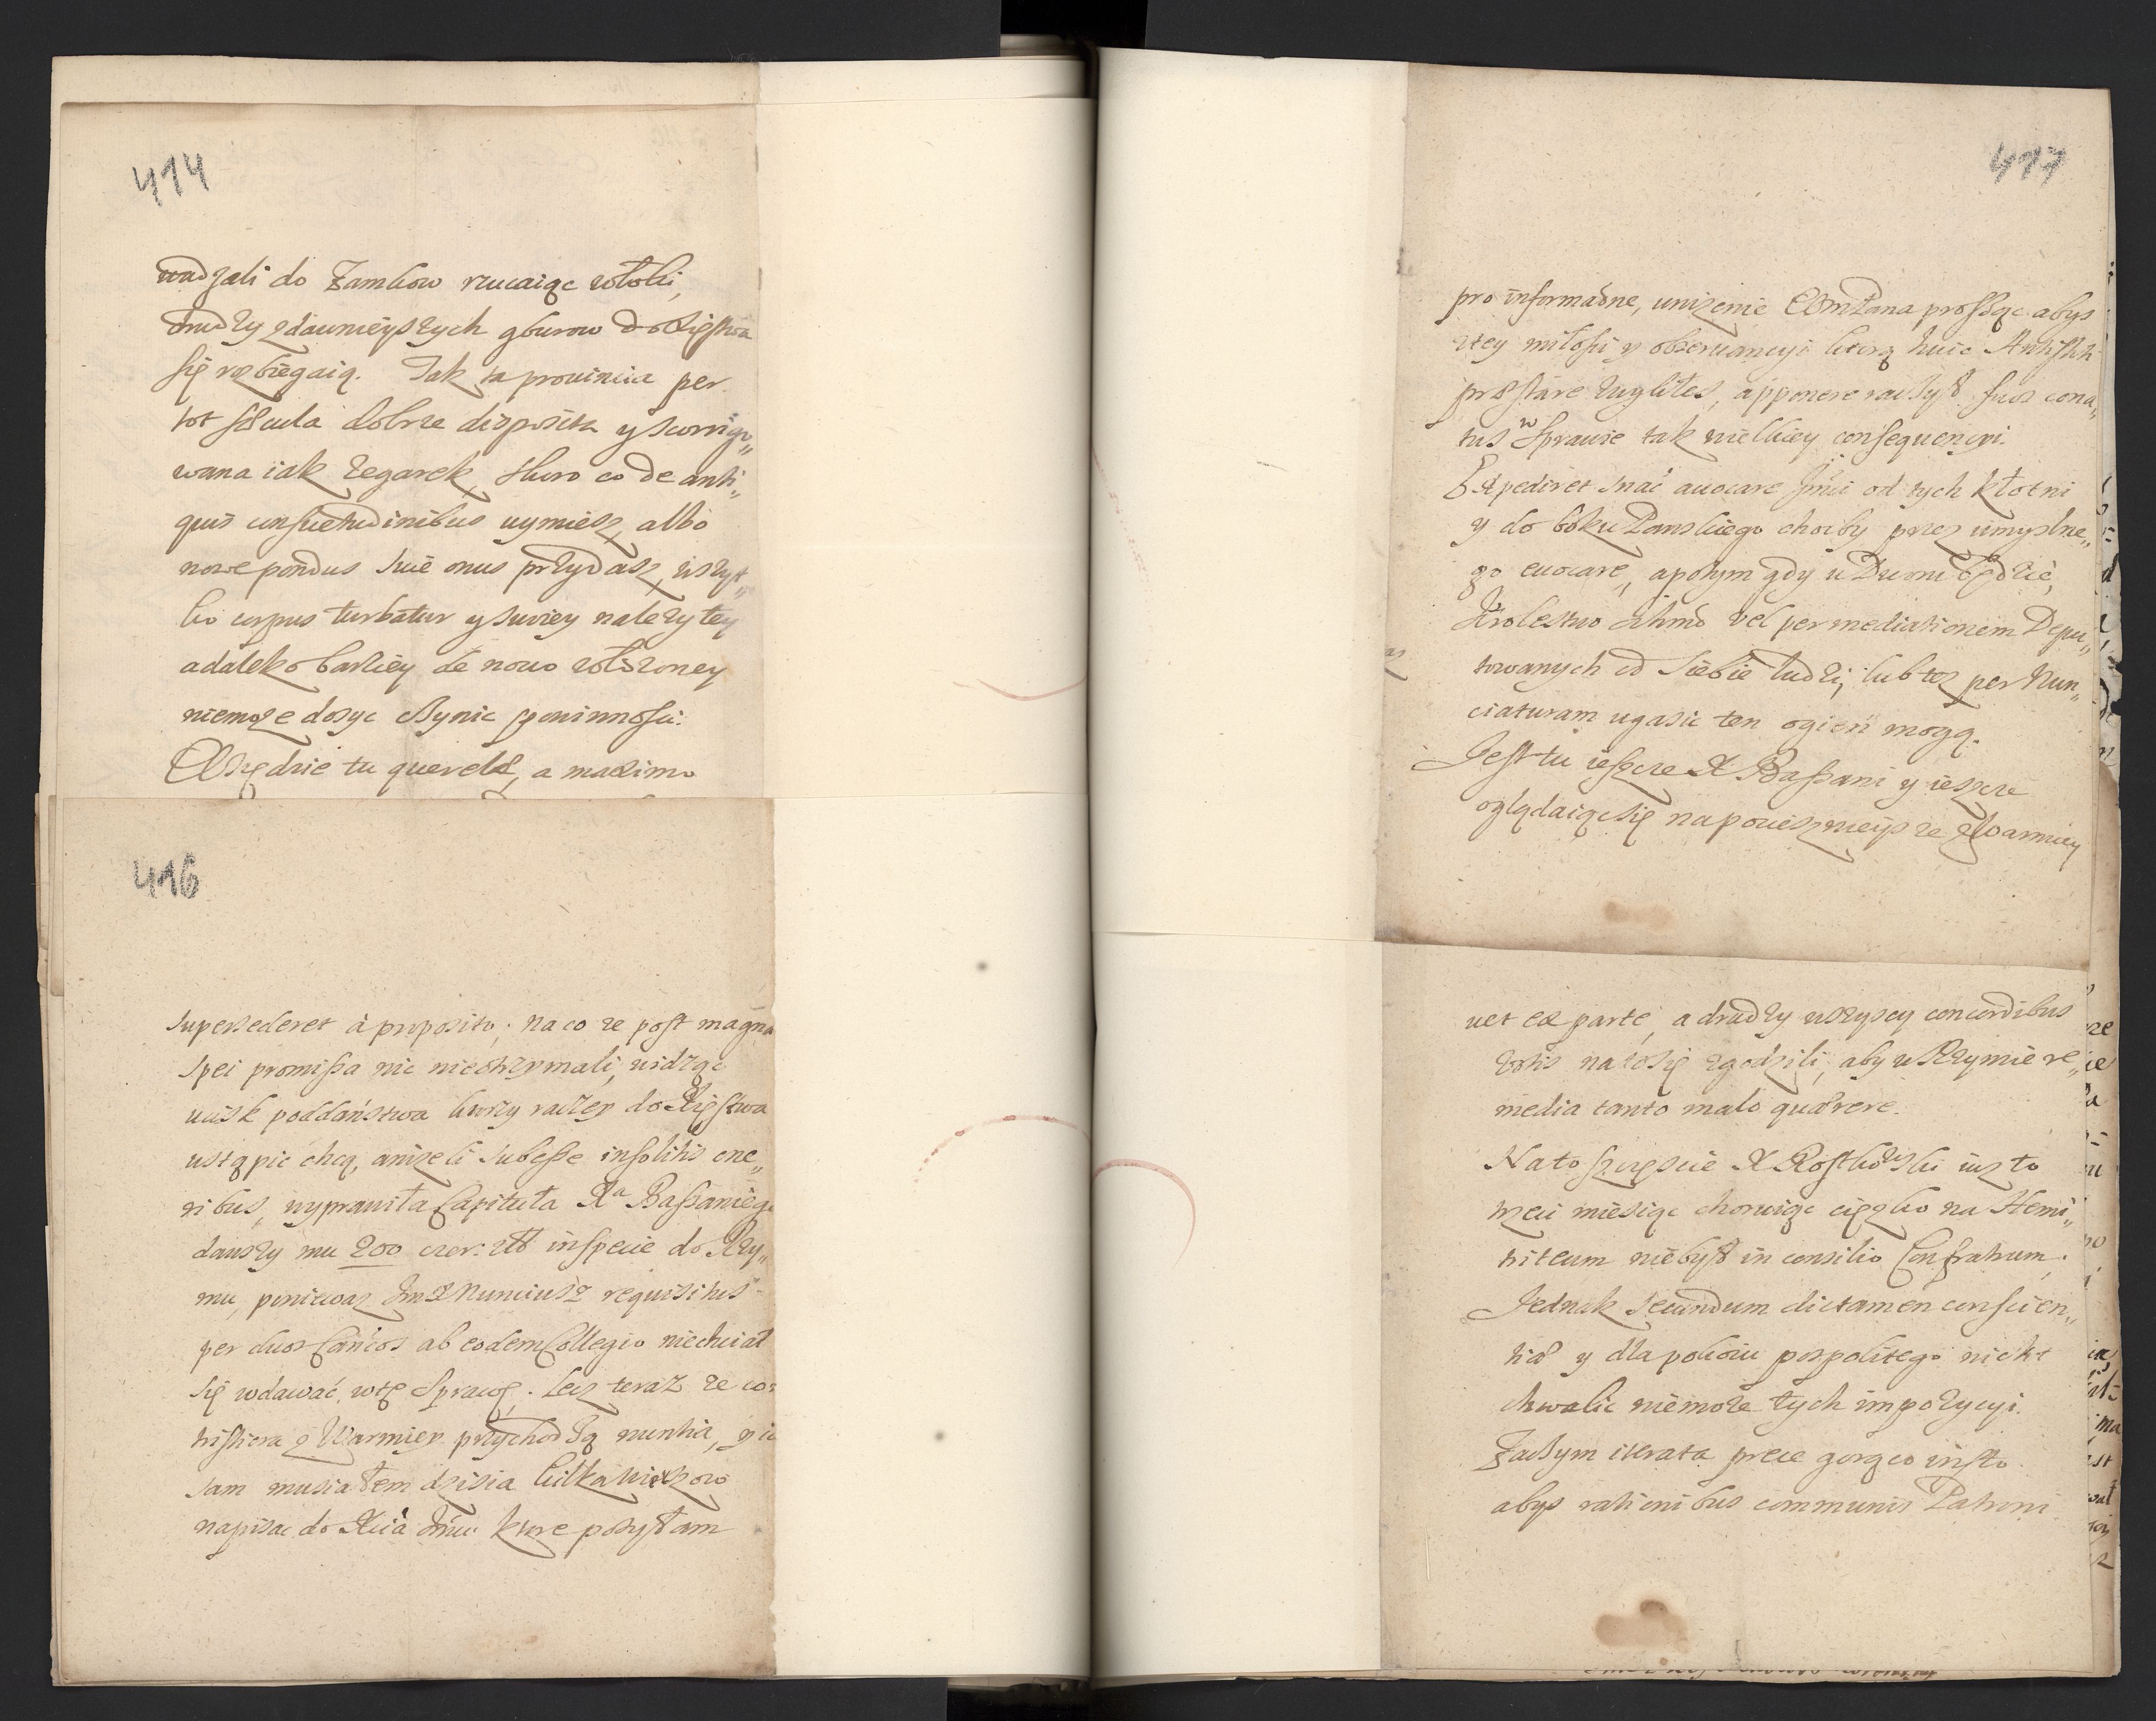 414
wadzali do Zamkow rzucaiąc włoki,
drudzy z dawnieyszych gburow do Xięstwa
się rozbiegaią. Tak ta prouincia per
tot sæcula dobrze disposita y skorrigo„
wana iak zegarek, skoro co de anti„
quis consuetudinibus uymiesz, albo
nowe pondus siue onus przydasz, wszyt„
ko corpus turbatur y swoiey nalezytey
a daleko barziey de nouo włozoney
niemoze dosyc czynic powinnosci.
Wszędzie tu querelæ, a maximo
416
supersederet à proposito; na co ze post magna
spei promissa nic nieotrzymali, widząc
ucisk poddaństwa ktorzy raczey do Xięstwa
ustąpic chcą, anizeli subesse insolitis one„
ribus, wyprawiła Capituła Xa Bassaniego
dawszy mu 200 czer: zł in specie do Rzy„
mu, poniewaz Jm X Nunciusz requisitus
per duos Can̄cos ab eodem Collegio niechciał
się wdawać w tę Sprawę. Lecz teraz ze co:
tristiora z Warmiey przychodzą nuntia, y ia
sam musiałem dzisia kilka
napisac do Xcia Jmci ktore posyłam
417
pro informaōne, unizenie WmPana prosząc abys
z tey miłosci y obseruancyi ktorą huic Antistiti
præstare zwykłes, apponere raczył suos cona„
tus w Sprawie tak wielkiey consequencyi.
Expediret snać auocare Jmci od tych kłotni
y do boku Panskiego choiby przez umyslne„
go euocare, a potym gdy u Dworu będzie,
Krolestwo Ichmć vel per mediationem Depu„
towanych od siebie ludzi, lub tez per Nun„
ciaturam ugasic ten ogień mogą.
Jest tu ieszcze X Bassani y ieszcze
oglądaiąc się na pocieszneiysze z Warmiey
uet ex parte, a drudzy wszyscy concordibus
votis na to się zgodzili, aby w Rzymie re„
media tanto malo quærere.
Na to szczęscie X Rostkowski iuz to
trzeci miesiąc choruiąc cięzko na Hemi„
triteum niebył in consilio Confratrum,
Jednak secundum dictamen conscien„
tiæ y dla pokoiu pospolitego nickt
chwalic niemoze tych impozycyi.
Zaczym iterata prece gorąco insto
abys rationibus communis Patroni